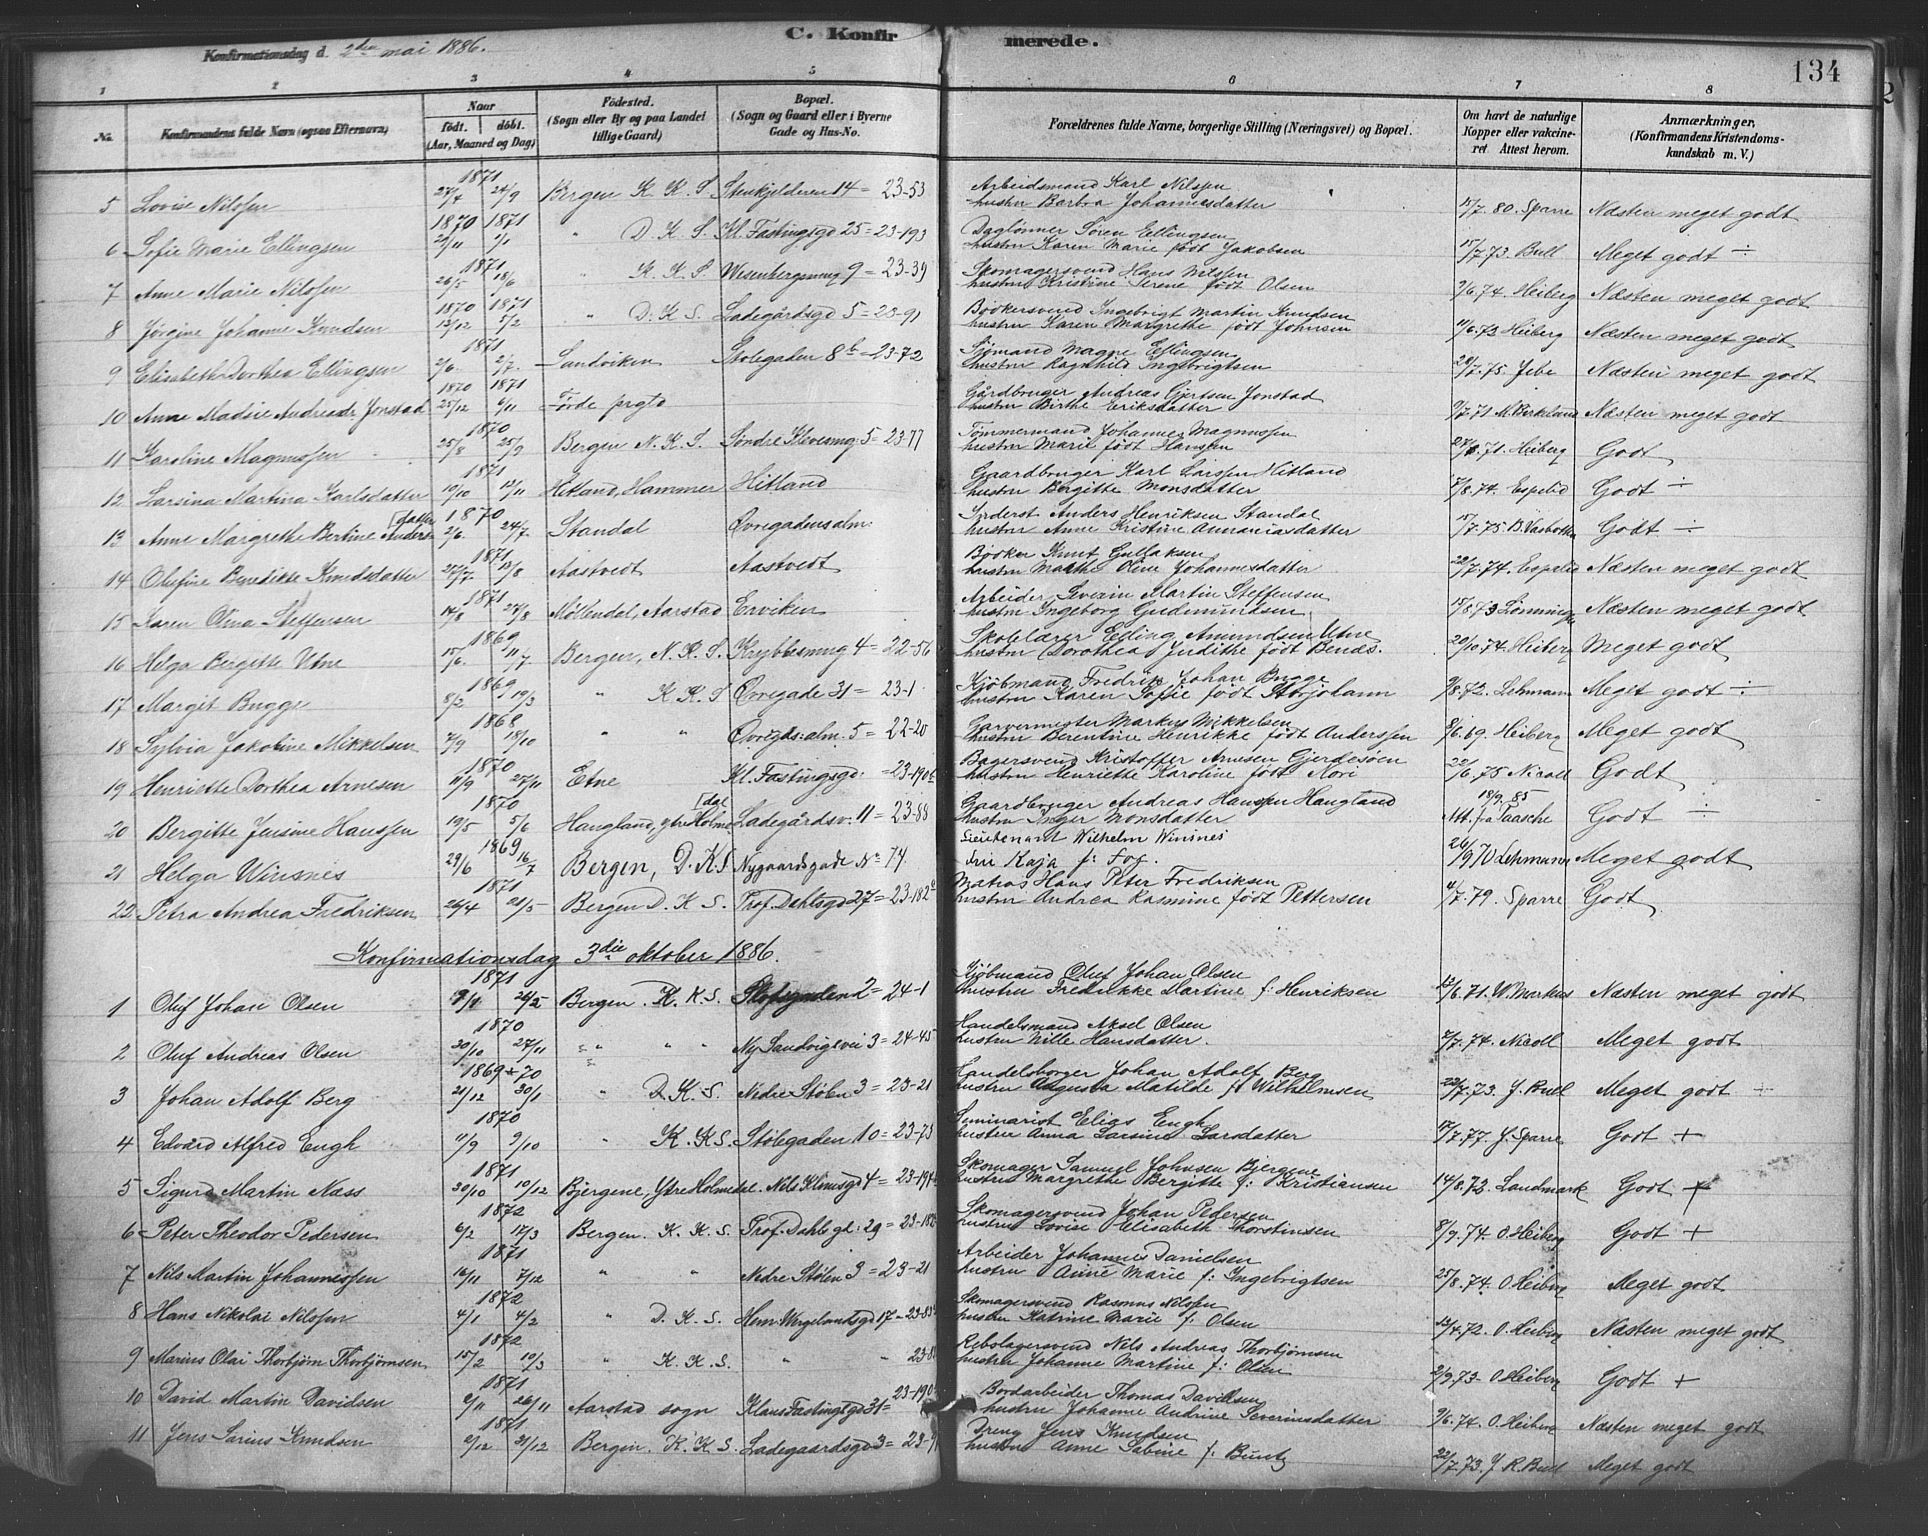 Konfirmationsdag d. 2den mai 1886.
C. Konfirmerede.
134
1 2 3 4 5 6 7 8
No.
Konfirmandens fulde Navn (ogsaa Efternavn)
Naar
født. døbt.
(Aar, Maaned og Dag)
Födested.
(Sogn eller By og paa Landet
tillige Gaard)
Bopæl.
(Sogn og Gaard eller i Byerne
Gade og Hus-No.
Forældrenes fulde Navne, borgerlige Stilling (Næringsvei) og Bopæl.
Om havt de naturlige
Kopper eller vakcine-
ret Attest herom.
Anmærkninger,
(Konfirmandens Kristendoms-
kundskab m. V.)
1871
5 Lovise Nilssen 27/4 24/9 Bergen K. K. S. Stenkjelderen 14 = 23-53 Arbeidsmand Karl Nilssen
hustru Barbra Johannesdatter 15/7 80. Sparre Næsten meget godt
1870 1871
6 Sofie Marie Ellingsen 21/11 2/1 " D. K. S Kl. Fastingsgd 25 = 23-193 Daglønner Søren Ellingsen
hustru Karen Marie født Jakobsen 15/7.73. Bull Meget godt ÷
1871
7 Anne Marie Nilssen 26/5 18/6 " K. K. S. Wesenbergsmug 9 = 23-39 Skomagersvend Hans Nilssen
hustru Kristine Serene født Olsen 2/6.74. Heiberg Næsten meget godt
1870 1871
8 Jørgine Johanne Knudsen 13/12 5/2 " D. K. S. Ladegårdsgd 5 = 23-91 Bødkersvend Ingebrigt Martin Knudsen
hustru Karen Margrethe født Johnsen 11/6.73 Heiberg Næsten meget godt
1871
9 Elisabeth Dorthea Ellingsen 2/6. 2/7. Sandviken Stølegaden 8b = 23-72 Sjømand Magne Ellingsen
hustru Ragnhild Ingebrigtsen 20/7.75. Jebe Næsten meget godt
1870 1871
10 Anne Madsie Andreasdr Jonstad 25/12 6/11 Førde prgtd Gårdbruger Andreas Gjertsen Jonstad
hustru Birthe Eriksdatter 9/7.71. M. Birkeland Næsten meget godt
1870
11 Karoline Magnussen 25/8 25/9 Bergen N. K. S. Søndre Klevesmug 5 = 23-77 Tømmermand Johannes Magnussen
hustru Marie født Hanssen 27/6.71. Heiberg Godt
1871
12 Larsina Martina Karlsdatter 10/10 12/11 Hitland, Hammer Hitland Gaardbruger Karl Larssen Hitland
hustru Bergitte Monsdatter 7/8.74. Espelid Godt ÷
1870
13 Anne Margrethe Bertine Anders[datter 2/6. 24/7. Standal Øvregadensalm: Inderst Anders Henriksen Standal
hustru Anne Kristine Annaniasdatter 15/7.75 Godt ÷
1871
14 Olufine Benedikte Knudsdatter 27/7 13/8 Aastvedt Aastvedt Bødker Knut Gullaksen
hustru Marthe Oline Johannesdatter 22/7.74. Espelid Næsten meget godt
1871
15 Karen Olina Steffensen 14/8 27/8 Møllendal, Aarstad Erviken Arbeider Severin Martin Steffensen
hustru Ingeborg Gudemundsen 15/8.73 Næsten meget godt
1869
16 Helga Bergitte Utne 15/6. 11/7 Bergen, N. K. S Krybbesmug 4 = 22-56 Skolelærer Elling Amundsen Utne
hustru Dorothea Judithe født Bends. 20/10.74. Heiberg Meget godt
1869
17 Margit Bugge 8/2 19/3 " K K S Øvregade 31 = 23-1 Kjøbmand Fredrik Johan Bugge
hustru Karen Sofie født Storjohann 9/8.72. Lehmann Meget godt ÷
1868
18 Sylvia Jakobine Mikkelsen 7/9 18/10 " " Øvregds: alm. 5 = 22-20 Garvermester Markus Mikkelsen
hustru Berentine Henrikke født Anderssen 8/6.69. Heiberg Meget godt
1870
19 Henriette Dorthea Arnesen 11/9 27/11 Etne Kl. Fastingsgd: = 23-190b Bagersvend Kristoffer Arnesen Gjerdesøen
hustru Henriette Karoline født Nori 22/6.75 Nicoll Godt
1870
20 Bergitte Jensine Hanssen 19/5 5/6 Haugland, ytre Holme[dal Ladegårdsv: 11 = 23-88 Gaardbruger Andreas Hanssen Haugland
hustru Inger Monsdatter 18/9.85 Att. fra Taasche Godt ÷
1869
21 Helga Winsnes 29/6 16/7 Bergen, D. K. S Nygaardsgade No 74 Lieutenant Wilhelm Winsnes
Fru Kaja f: Fog. 26/9 70 Lehmann Meget godt
1871
22 Petra Andrea Fredriksen 26/4 21/5 Bergen D. K. S. Prof. Dahlsgd 27 = 23-182 Matros Hans Peter Fredriksen
hustru Andrea Rasmine født Pettersen 11/7.79. Sparre Godt
Konfirmationsdag 3die oktober 1886.
1871
1 Oluf Johan Olsen 9/4 29/5 Bergen K. K. S. 2 = 24-1 Kjøbmand Oluf Johan Olsen
hustru Fredrikke Martine f: Henriksen 12/6.71. W. Martens Næsten meget godt
1870
2 Oluf Andreas Olsen 30/10 27/11 " " " Ny Sandvigsvei 3 = 24-45 Handelsmand Aksel Olsen
hustru Nille Hansdatter. 7/7.74. Nicoll Meget godt
1869 + 70
3 Johan Adolf Berg 21/12 30/1 " D. K. S. Nedre Stølen 3 = 23-21 Handelsborger Johan Adolf Berg
hustru Augusta Matilde f: Wilhelmsen 22/7.73. J. Bull Meget godt ÷
1870
4 Edvard Alfred Engh 11/9 9/10 " K. K. S. Stølegaden 10 = 23-73 Seminarist Elias Engh
hustru Anna Larsine Larsdatter 17/7.77. J. Sparre Godt +
1871
5 Sigurd Martin Næss 30/10 10/12 Bjergene, Ytre Holmedal. Nils Klimsgd 4 = 23-194 Skomager Samuel Johnsen Bjergene
hustru Margrethe Bergitte f: Kristiansen 14/8.72. Landmark Godt +
1872
6 Peter Theodor Pedersen 6/2 17/3 Bergen. K. K. S. Prof. Dahls gd: 29 = 23-182 Skomagersvend Johan Pedersen
hustru Lovise Elisabeth Thorstinsen 8/9.74. O. Heiberg Godt +
1871
7 Nils Martin Johannessen 16/11 7/12 " " Nedre Stølen 3 = 23-21 Arbeider Johannes Danielsen
hustru Anne Marie f: Ingebrigtsen 25/8.74. O Heiberg Meget godt
1872
8 Hans Nikolai Nilssen 4/1 4/2 " D. K. S. Henr. Wergelandsgd 17 = 23-83 Skomagersvend Rasmus Nilssen
hustru Katrine Marie f: Olsen 12/4.72. O. Heiberg Næsten meget godt
1872
9 Marius Olai Thorbjørn Thorbjørnsen 15/2 10/3 " K. K. S. " " 23-8 Rebslagersvend Nils Andreas Thorbjørnsen
hustru Johanne Martine f: Olsen 2/9.73. O Heiberg Godt +
1871
10 David Martin Davidsen 2/11 26/11 Aarstad sogn Klaus Fastingsgd 31 = 23-190 Bordarbeider Thomas Davidsen
hustru Johanne Andrine Severinsdatter 9/6.74. O. Heiberg Næsten meget godt
1871
11 Jens Sarius Knudsen 2/12 31/12 Bergen. K. K. S. Ladegaardsgd 3 = 23-91 Dreng Jens Knudsen
hustru Anne Sabine f: Buntz 22/7.73. J R. Bull Meget godt